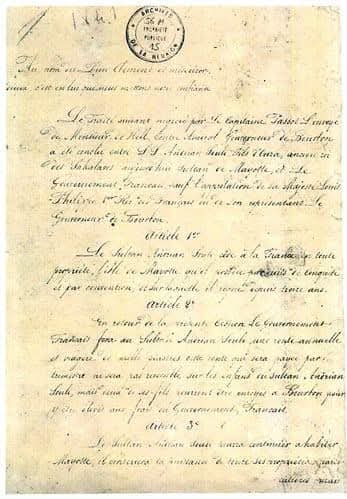 ARCHIVES
DE LA RÉUNION
Au nom du Dieu clément et
Le Traité suivant négocié par le Capitaine Passot Envoyé
de Monsieur de Hell, Contre Amiral Gouverneur de Bourbon
a été conclu entre S. A. Andrian Souli
des Sakalaves aujourd'hui Sultan de Mayotte, et Le
Gouvernement Français sauf l'acceptation de Sa Majesté Louis
Philippe 1er Roi des Français ou de son représentant Le
Gouverneur de Bourbon.
Article 1er
Le Sultan Andrian Souli cède à la France en toute
propriété, l'île de Mayotte qu'il
et par convention, et sur laquelle il règne depuis treize ans.
Article 2e
En retour de la présente Cession Le Gouvernement
Français fera au Sultan Andrian Souli, une rente annuelle
et viagère de mille piastres cette rente qui sera payée par
trimestre ne sera pas reversible sur les enfants du Sultan Andrian
Souli, mais deux de ses fils pourront être envoyés à Bourbon pour
y être élevés aux frais du Gouvernement Français.
Article 3e
Le Sultan Andrian Souli pourra continuer à habiter
Mayotte, et conservera la jouissance de toutes ses propriétés